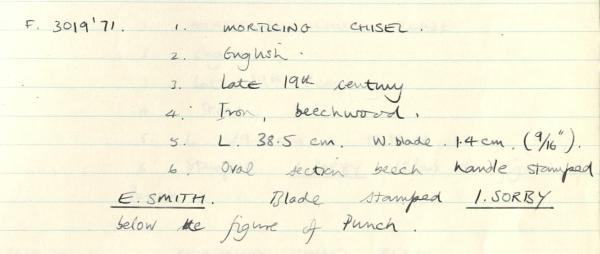 F. 3019'71. 1. MORTICING CHISEL.
2. English.
3. Late 19th century
4. Iron, beechwood.
5. L. 38.5 cm. W. blade. 1.4 cm. (9/16").
6. Oval section beech handle stamped
E. SMITH. Blade stamped I. SORBY
below the figure of Punch.